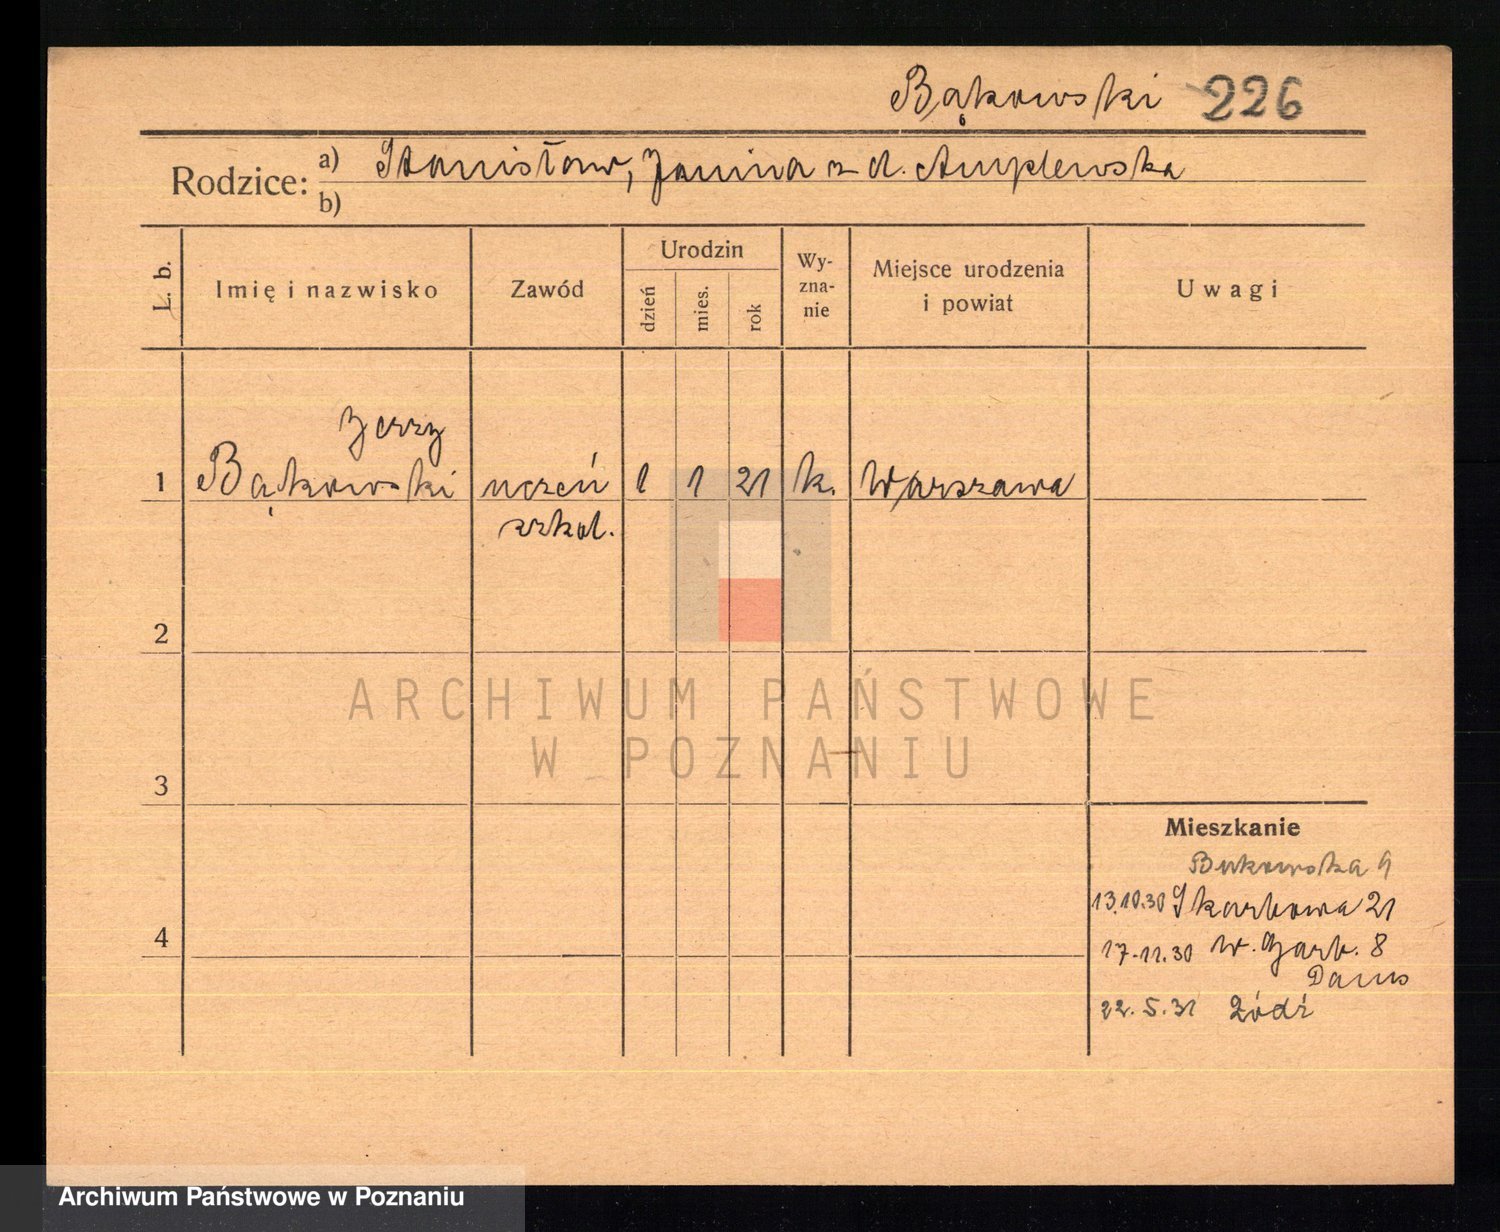 Bąkowski 226
Rodzice: a) Stanisław, Janina z d. Amplewska
b)
L. b.
Imię i nazwisko
Zawód
Urodzin
dzień
mies.
rok
Wy-
zna-
nie
Miejsce urodzenia
i powiat
Uwagi
Jerzy
1 Bąkowski uczeń 1 1 21 k. Warszawa
szkol.
2
ARCHIWUM PAŃSTWOWE
W POZNANIU
3
Mieszkanie
Bukowska 9
13.10.30 Skarbowa 21
4
17.11.30 W. Garb. 8
22.5.31 Łódź
Archiwum Państwowe w Poznaniu